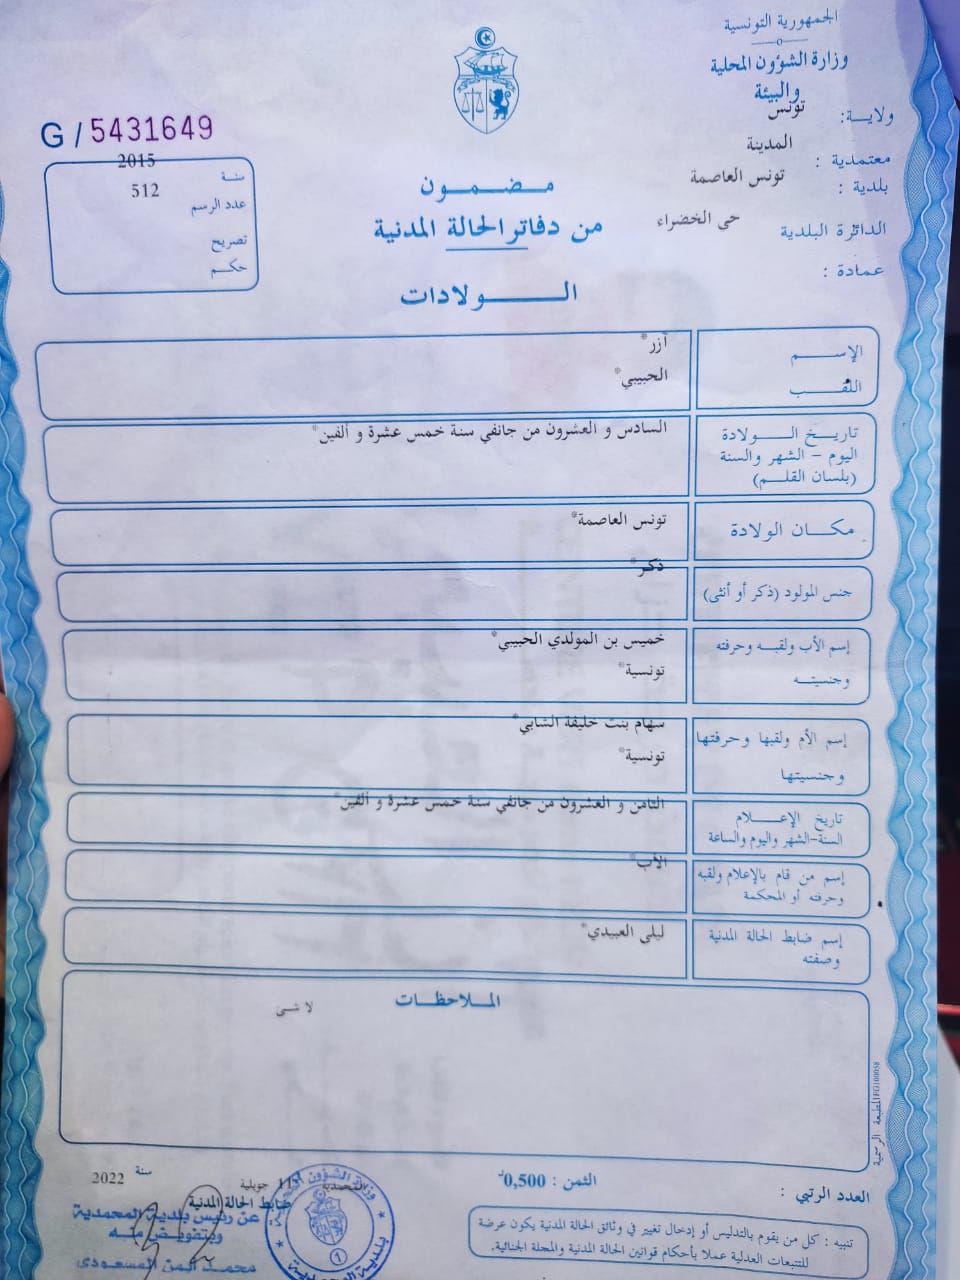 الجمهورية التونسية
وزارة الشؤون المحلية
والبيئة
ولايـــة: تونس
معتمدية : المدينة
بلدية : تونس العاصمة
الدائرة البلدية حي الخضراء
عمادة :
G / 5431649
سنة 2015
عدد الرسم 512
تصريح
حكم
مضمون
من دفاتر الحالة المدنية
الولادات
الإسم آزر*
اللقب الحبيبي*
تاريخ الولادة السادس و العشرون من جانفي سنة خمس عشرة و ألفين*
اليوم – الشهر والسنة
(بلسان القلم)
مكان الولادة تونس العاصمة*
جنس المولود (ذكر أو أنثى) ذكر*
إسم الأب ولقبه وحرفته خميس بن المولدي الحبيبي*
وجنسيته تونسية*
إسم الأم ولقبها وحرفتها سهام بنت خليفة الشابي*
وجنسيتها تونسية*
تاريخ الإعلام الثامن و العشرون من جانفي سنة خمس عشرة و ألفين*
السنة-الشهر واليوم والساعة
إسم من قام بالإعلام ولقبه الأب*
وحرفته أو المحكمة
إسم ضابط الحالة المدنية ليلى العبيدي*
وصفته
الملاحظات
لا شىء
المطبعة الرسمية FG100058
العدد الرتبي :
الثمن : 0,500د
المحمدية 11 جويلية سنة 2022
ضابط الحالة المدنية
عن رئيس بلدية المحمدية
وبتفويض منه
تنبيه : كل من يقوم بالتدليس أو إدخال تغيير في وثائق الحالة المدنية يكون عرضة
للتتبعات العدلية عملا بأحكام قوانين الحالة المدنية والمجلة الجنائية.